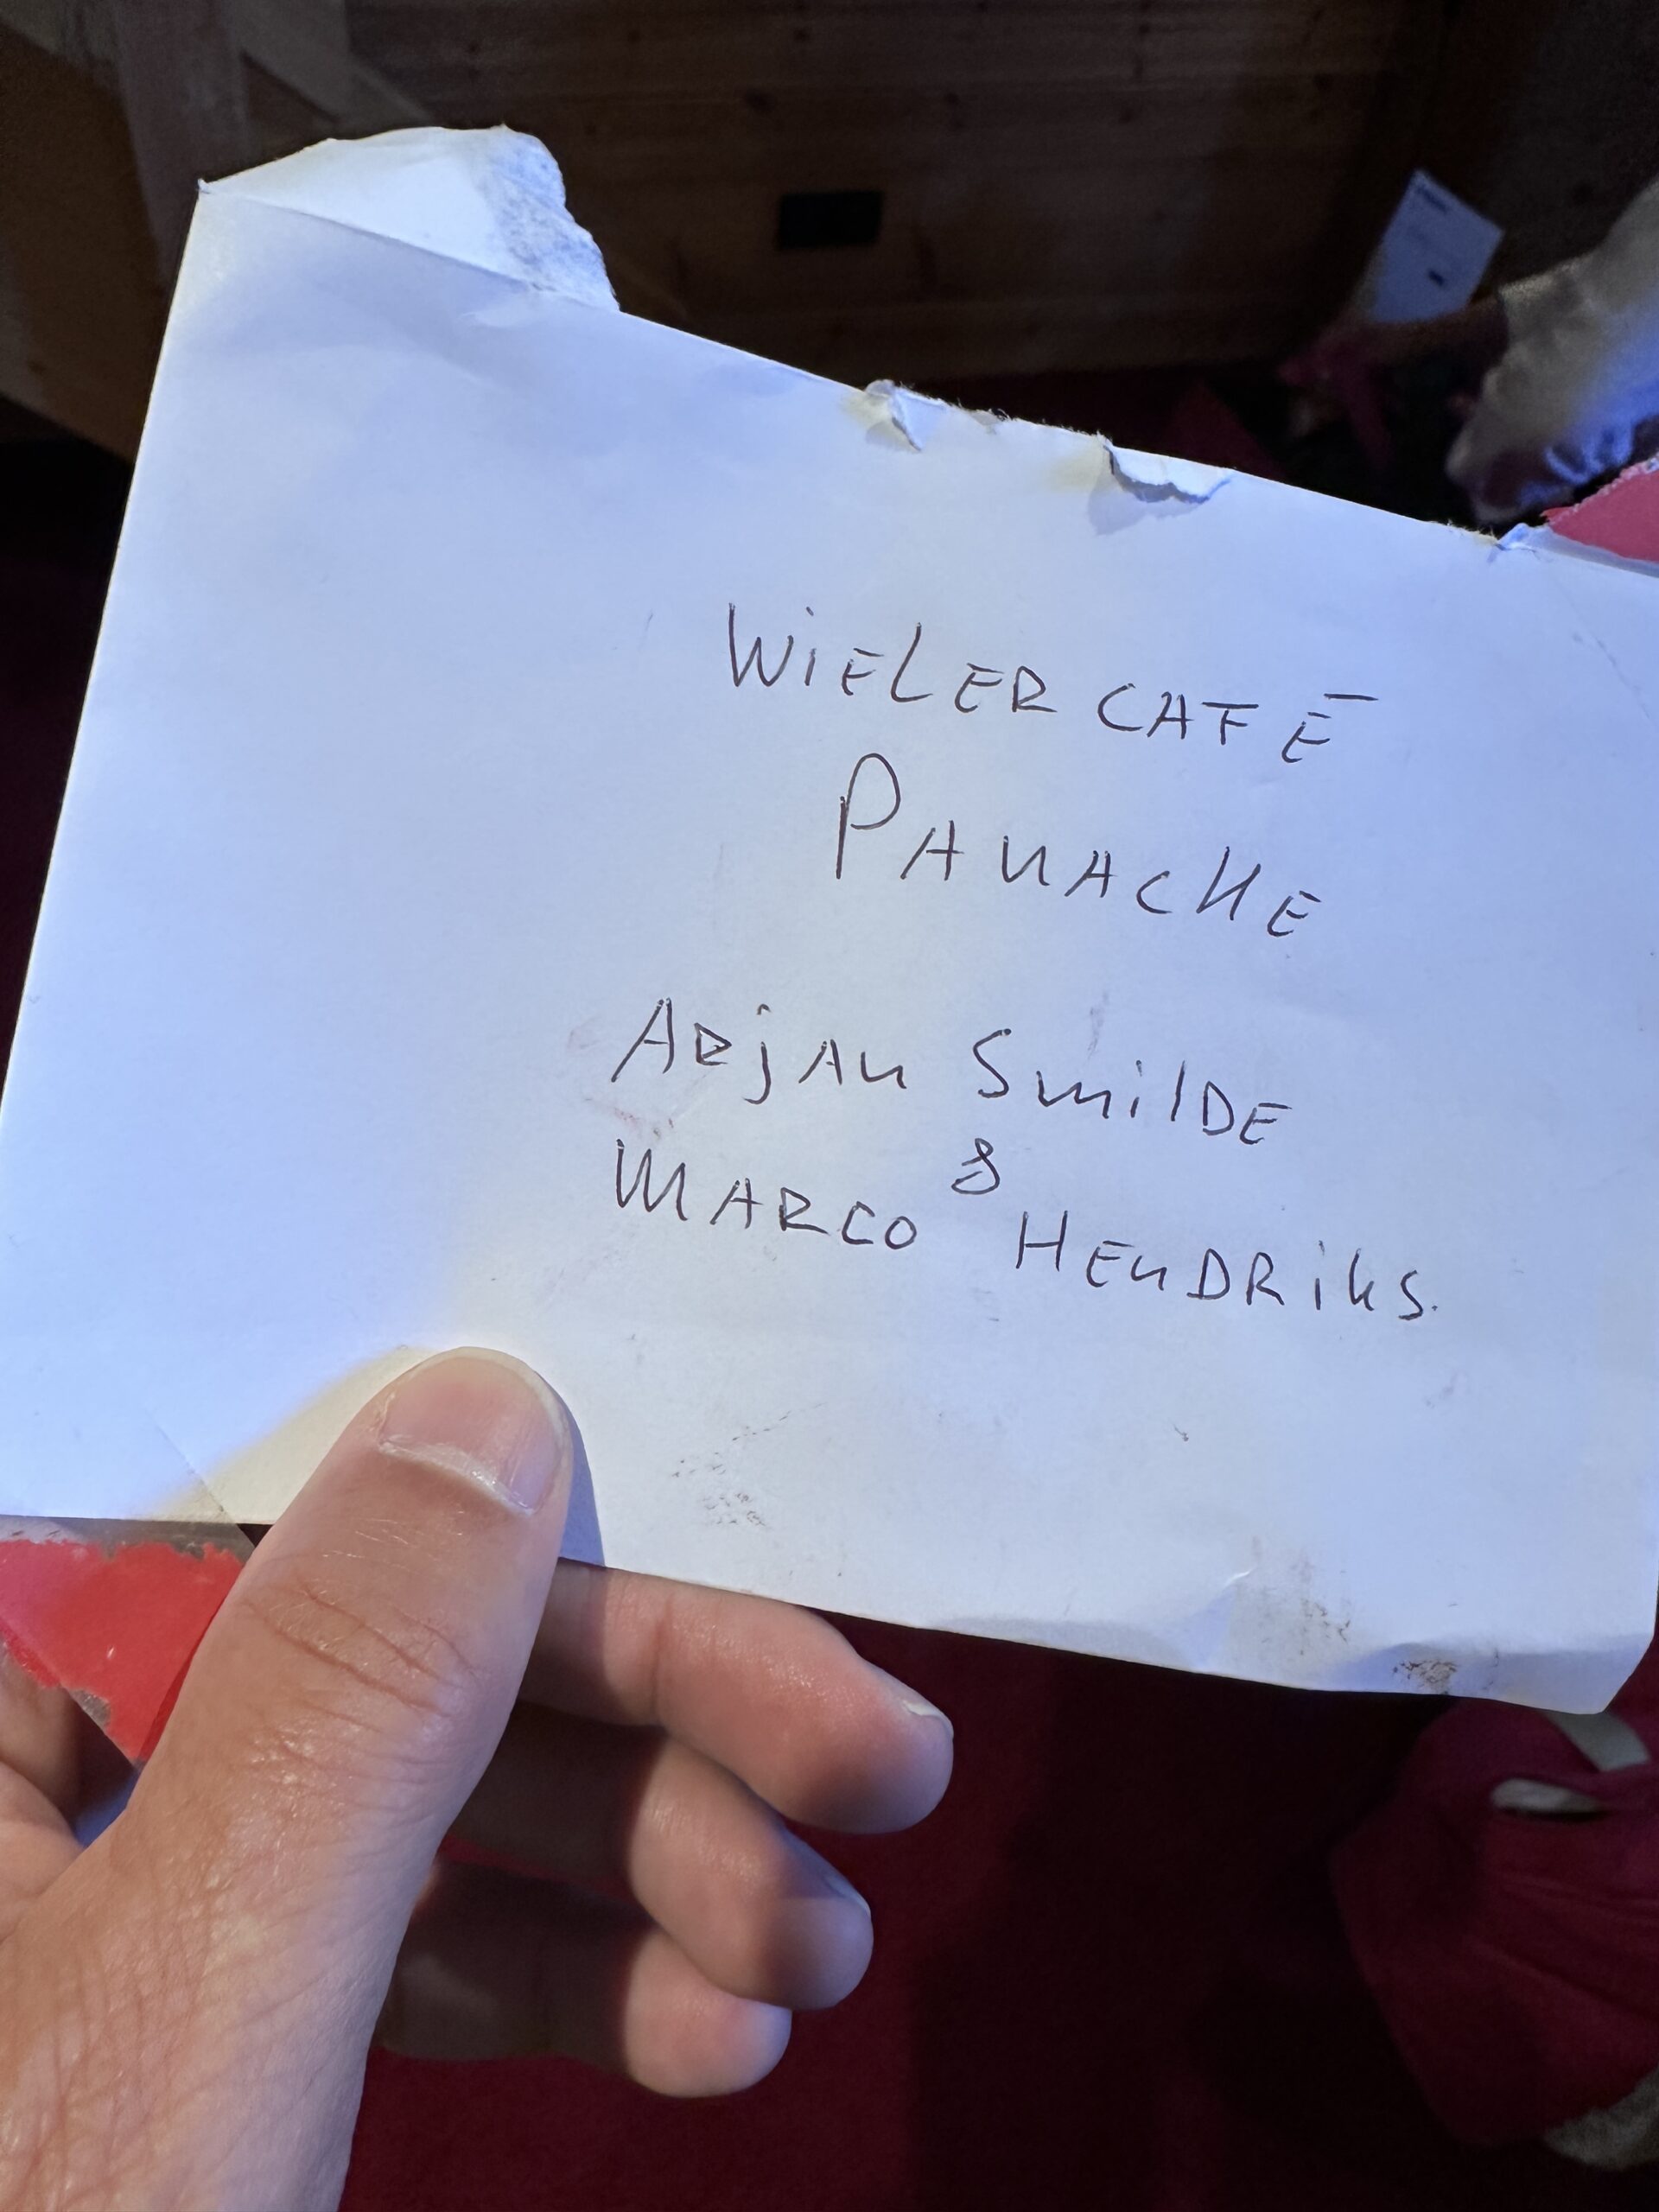 WiELERCAFÉ
PANACHE
ARjAn SmilDE
&
MARCO HEnDRiks.